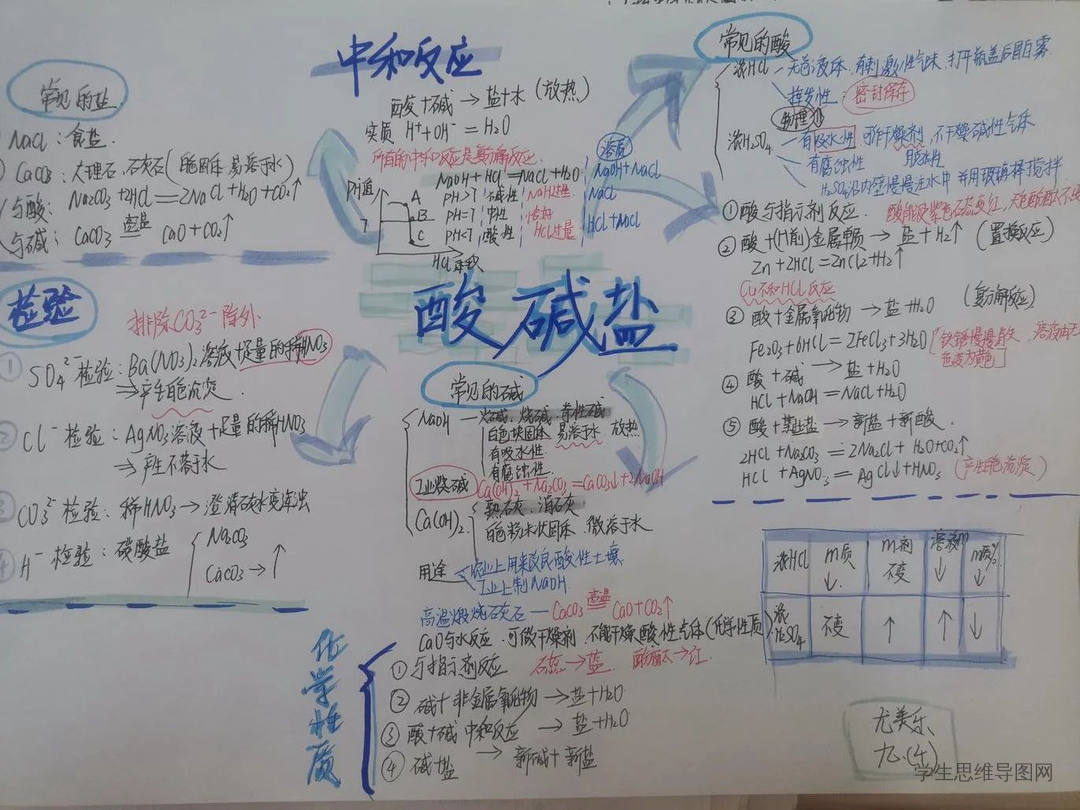 中和反应
酸+碱→盐+水(放热)
实质 H⁺+OH⁻=H₂O
所有的中和反应是复分解反应.
NaOH+HCl=NaCl+H₂O
PH值
7
A
B
C
HCl体积
PH>7 碱性 NaOH过量
PH=7 中性 恰好
PH<7 酸性 HCl过量
溶质
NaOH+NaCl
NaCl
HCl+NaCl
常见的盐
NaCl:食盐
CaCO₃:大理石,石灰石(白色固体,易溶于水)
与酸:Na₂CO₃+2HCl=2NaCl+H₂O+CO₂↑
与碱:CaCO₃ 高温 CaO+CO₂↑
检验
排除CO₃²⁻除外
① SO₄²⁻检验:Ba(NO₃)₂溶液+足量的稀HNO₃
→产生白色沉淀.
② Cl⁻检验:AgNO₃溶液+足量的稀HNO₃
→产生不溶于水
③ CO₃²⁻检验:稀HNO₃→澄清石灰水变浑浊
④ H⁻检验:碳酸盐
Na₂CO₃
CaCO₃→↑
酸碱盐
常见的酸
浓HCl—无色液体.有刺激性气味,打开瓶盖后冒白雾
挥发性:密封保存
物理
浓H₂SO₄—有吸水性 可作干燥剂,不干燥碱性气体
有腐蚀性 脱水性
H₂SO₄沿内壁慢慢注水中并用玻璃棒搅拌
①酸与指示剂反应.酸能使紫色石蕊变红,无色酚酞不变
②酸+(H前)金属单质→盐+H₂↑ (置换反应)
Zn+2HCl=ZnCl₂+H₂↑
Cu不和HCl反应
③酸+金属氧化物→盐+H₂O (复分解反应)
Fe₂O₃+6HCl=2FeCl₃+3H₂O [铁锈慢慢消失,溶液由无色变为黄色]
④酸+碱→盐+H₂O
HCl+NaOH=NaCl+H₂O
⑤酸+某些盐→新盐+新酸.
2HCl+Na₂CO₃=2NaCl+H₂O+CO₂↑
HCl+AgNO₃=AgCl↓+HNO₃ (产生白色沉淀)
常见的碱
NaOH 火碱,烧碱,苛性碱
白色块固体,易溶于水 放热
有吸水性
有腐蚀性.
工业烧碱 Ca(OH)₂+Na₂CO₃=CaCO₃↓+2NaOH
Ca(OH)₂ 熟石灰,消石灰
白色粉末状固体,微溶于水
用途
农业上用来改良酸性土壤
工业上制NaOH.
高温煅烧石灰石—CaCO₃ 高温 CaO+CO₂↑
CaO与水反应,可做干燥剂,不能干燥酸性气体(化学性质)
化学性质
①与指示剂反应 石蕊→蓝. 酚酞→红
②碱+非金属氧化物→盐+H₂O
③酸+碱 中和反应→盐+H₂O
④碱+盐→新碱+新盐
浓HCl m质↓ m剂不变 溶液m↓ m质%↓
浓H₂SO₄ 不变 ↑ ↑ ↓
尤美乐
九.(4)
学生思维导图网